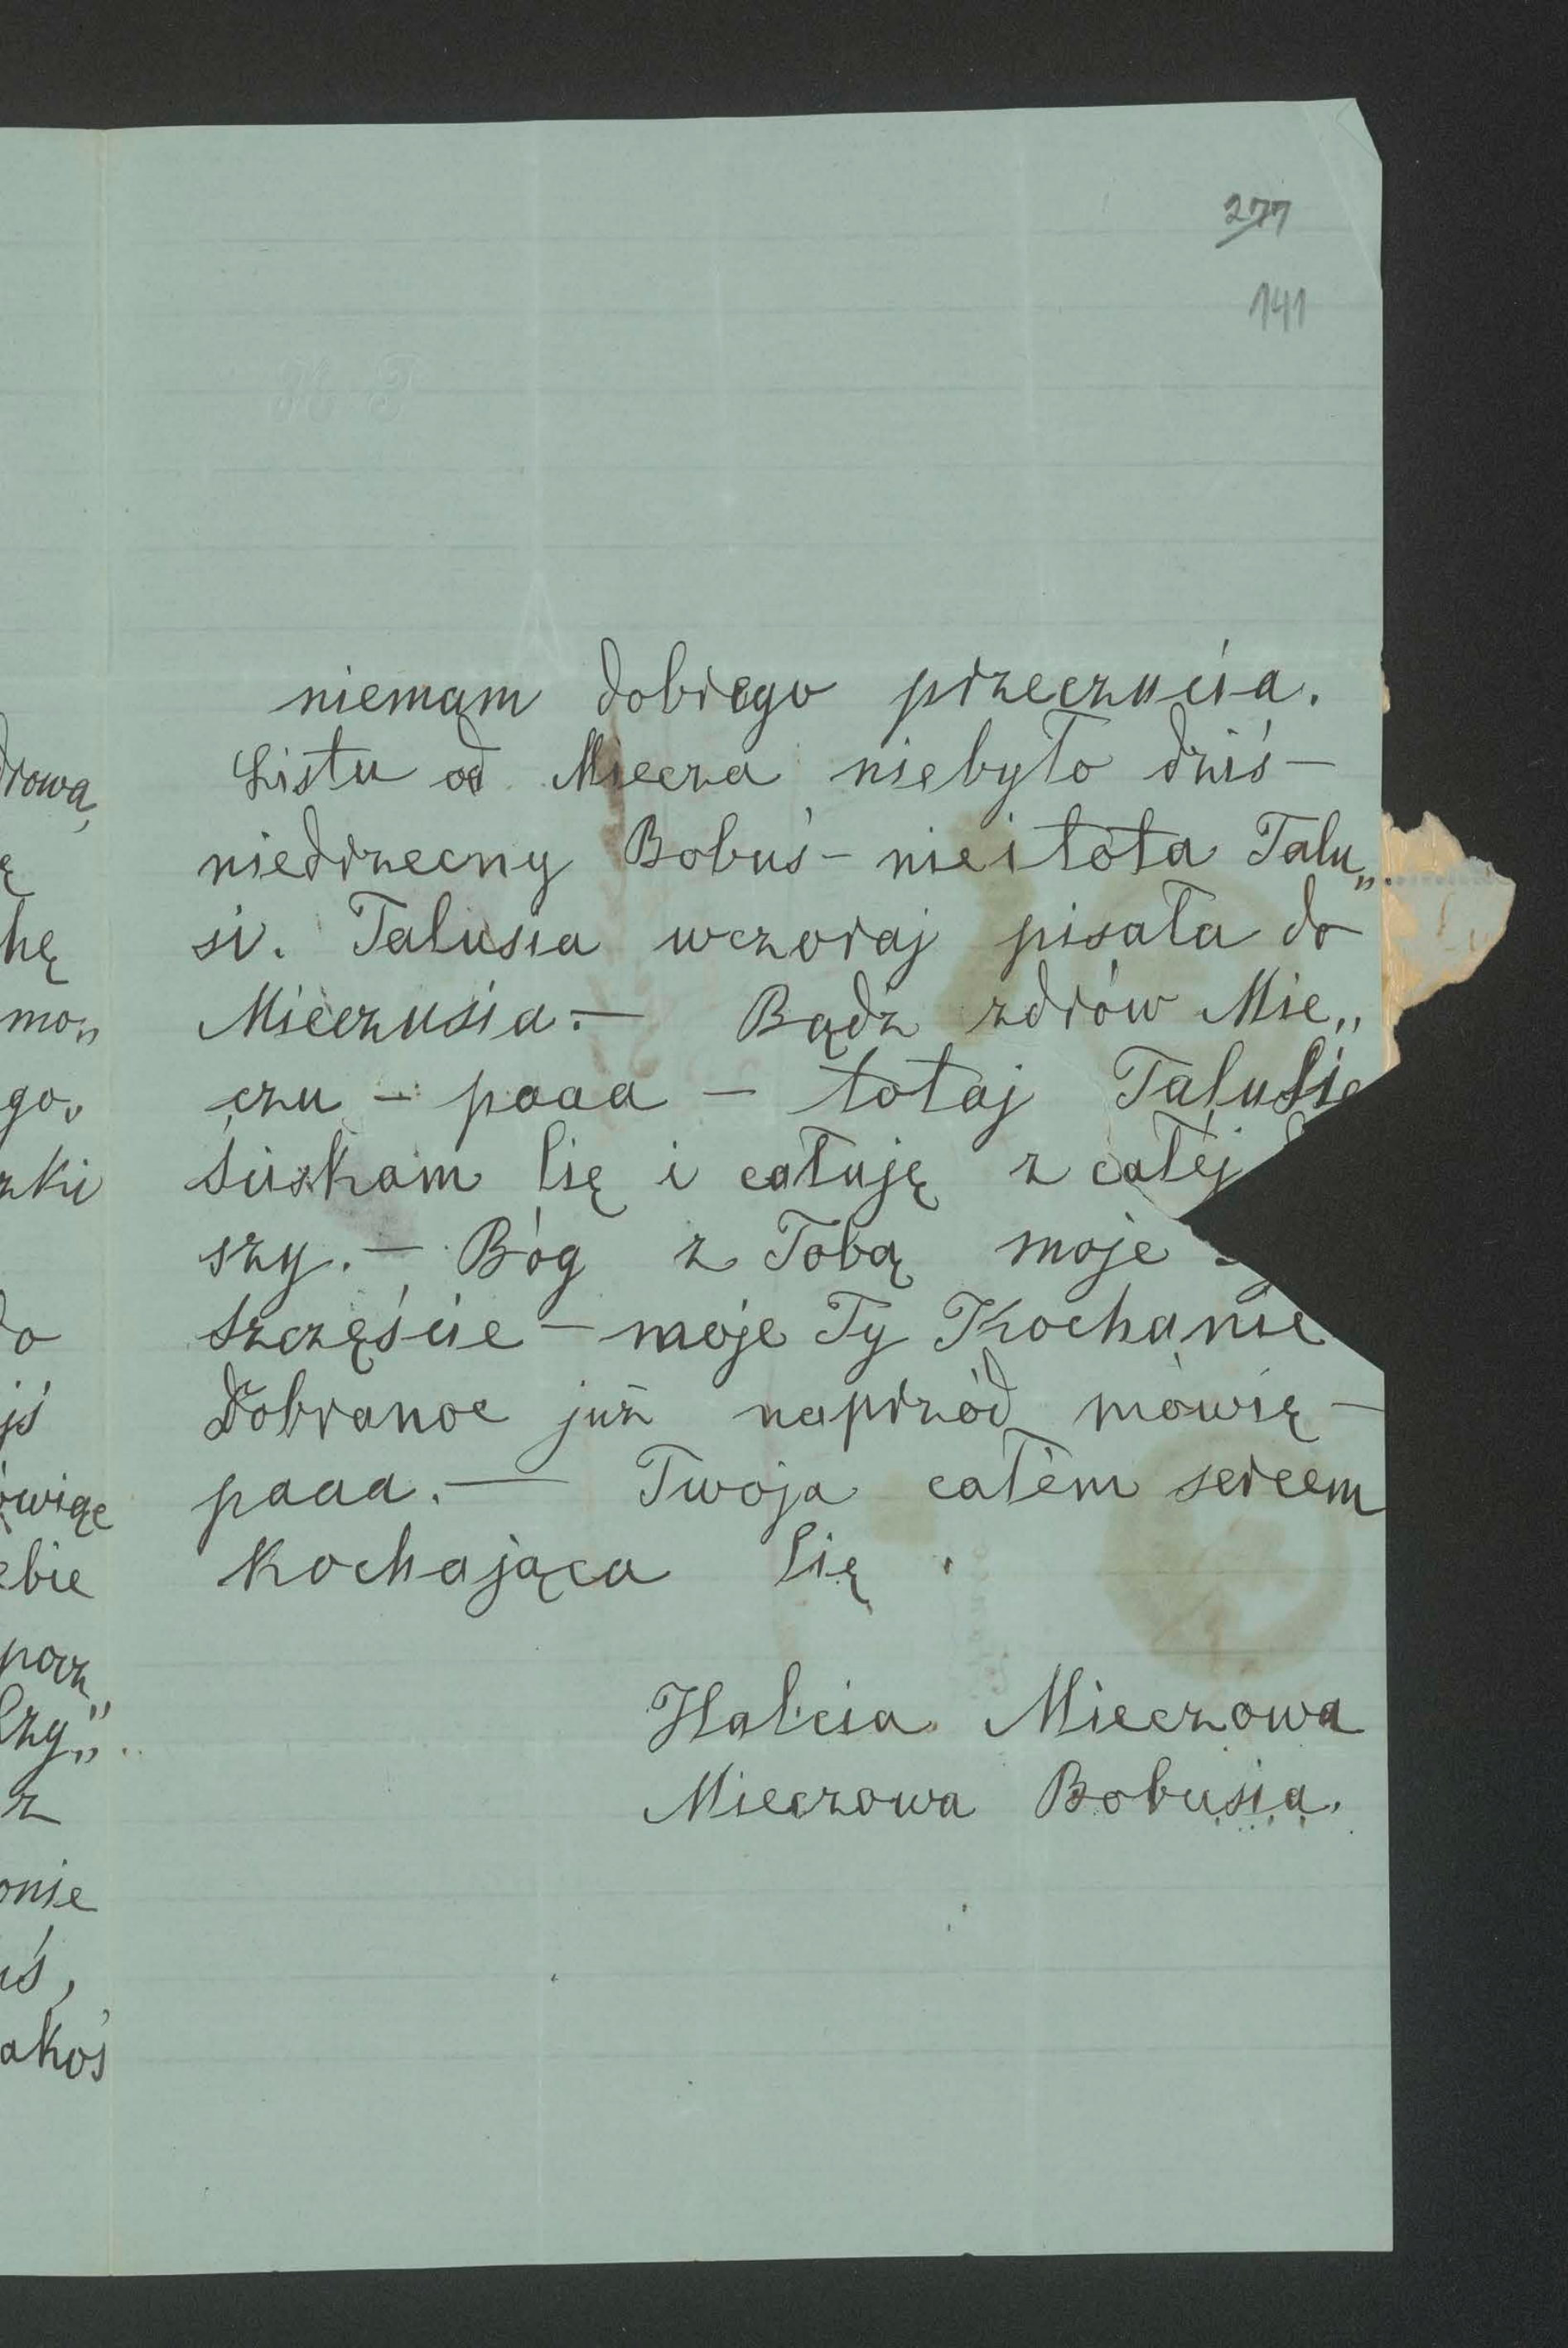 277
141
niemam dobrego przeczucia.
Listu od Miecza niebyło dziś –
niedrzecny Bobuś – nie i tota Talu„
si. Talusia wczoraj pisała do
Mieczusia. – Bądz zdrów Mie„
czu – paaa – totaj Talusie
śiskam Cię i całuję z całéj
szy. – Bóg z Tobą moje
szczęście – moje Ty Kochanie
Dobranoc już naprzód mówię –
paaa. – Twoja całém sercem
Kochająca Cię
Halcia Mieczowa
Mieczowa Bobusia.
drowa,
ę
hę
mo„
go„
zki
do
jś
ówiąc
ebie
pocz„
czy„
z
onie
uś,
akoś